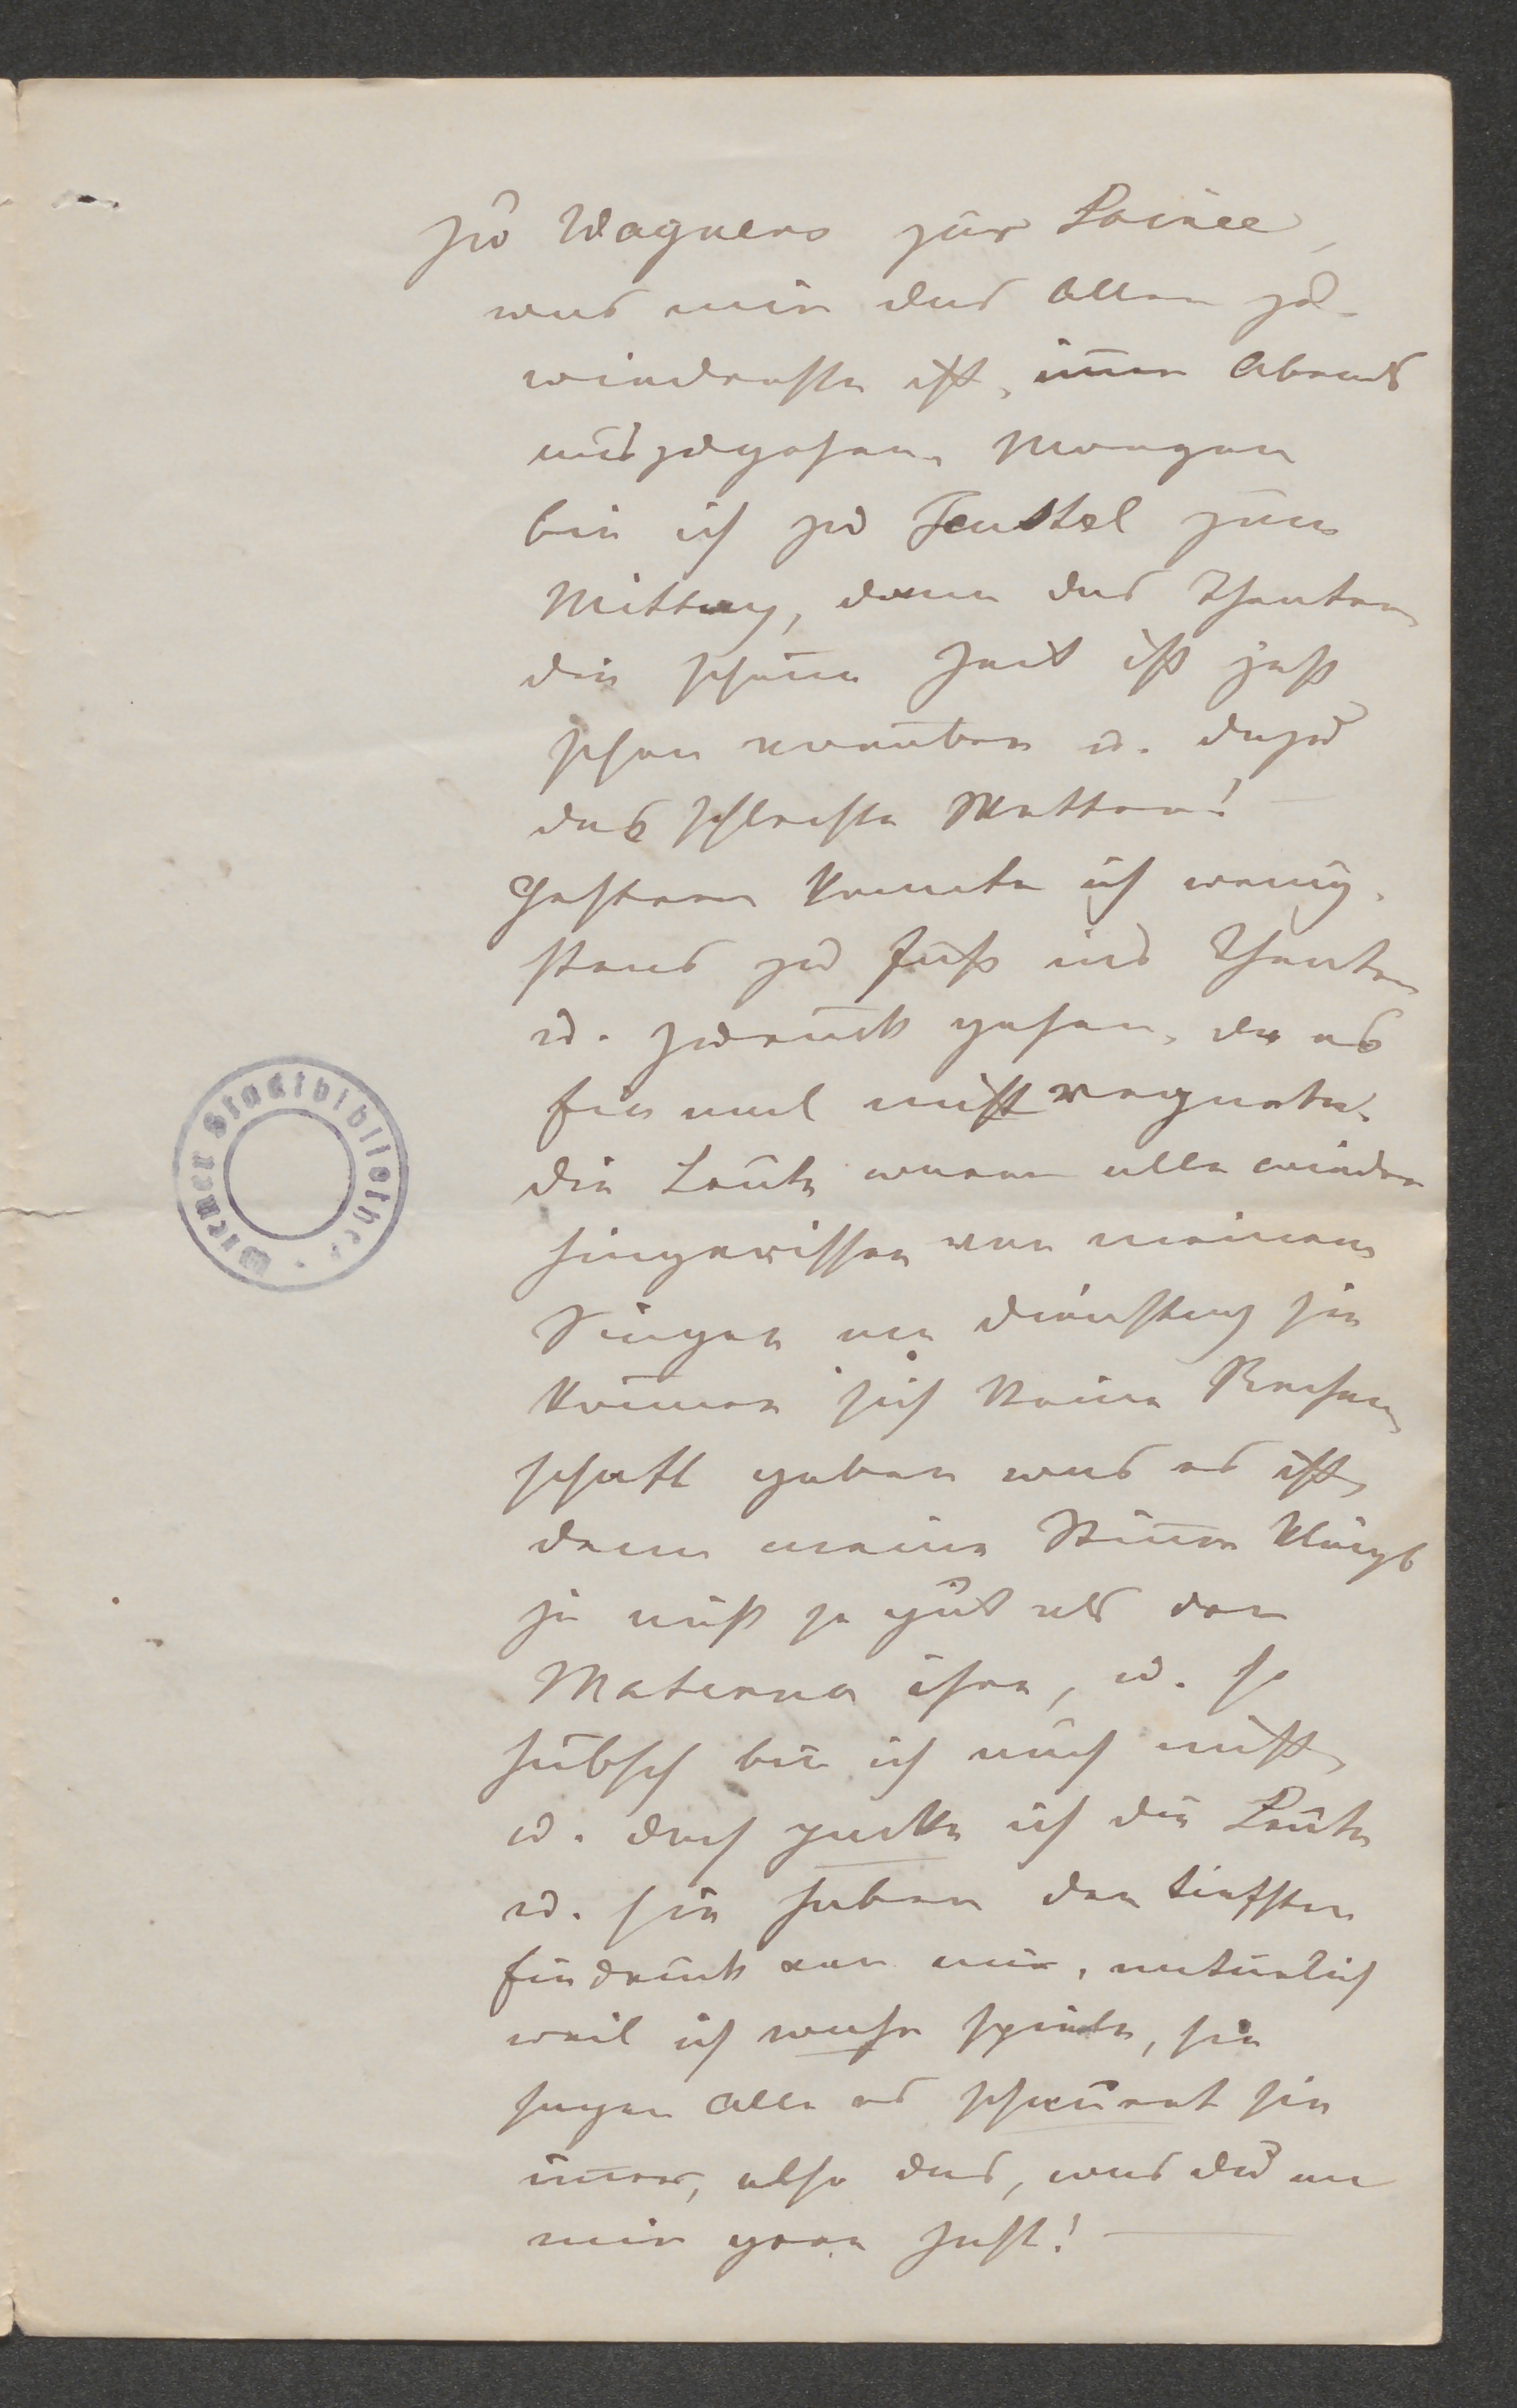 zu Wagners zur Soirée,
was mir das Aller zu-
widerste ist, im̄er Abends
auszugehen. Morgen
bin ich zu Feustel zum
Mittag, dann das Theater,
die schöne Zeit ist jetzt
schon vorüber u. dazu
das schlechte Wetter! —
Gestern konnte ich wenig-
stens zu Fuß ins Theater
u. zurück gehen, da es
ein mal nicht regnete.
die Leute waren alle wieder
hingerissen von meinem
Singen am Dienstag sie
kön̄en sich keine Rechen
schaft geben was es ist,
denn meine Stim̄e klingt
ja nicht so gut als der
Materna ihre, u. so
hübsch bin ich auch nicht,
u. doch packe ich die Leute
u. sie haben den tiefsten
Eindruck von mir, natürlich
weil ich wahr spiele, sie
sagen alle es schauert sie
im̄er, also das, was du an
mir gern hast! —
Wiener Stadtbibliothek.